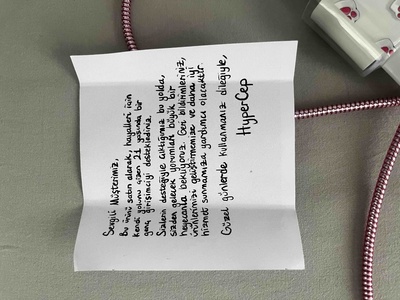 Sevgili Müşterimiz,
Bu ürünü satın alarak, hayalleri için
kendi yolunu çizen 21 yaşında bir
genç girişimciyi desteklediniz.
Sizlerin desteğiyle çıktığımız bu yolda,
sizden gelecek yorumları büyük bir
heyecanla bekliyoruz. Geri bildirimleriniz,
ürünlerimizi geliştirmemize ve daha iyi
hizmet sunmamıza yardımcı olacaktır.
Güzel günlerde kullanmanız dileğiyle,
HyperCep